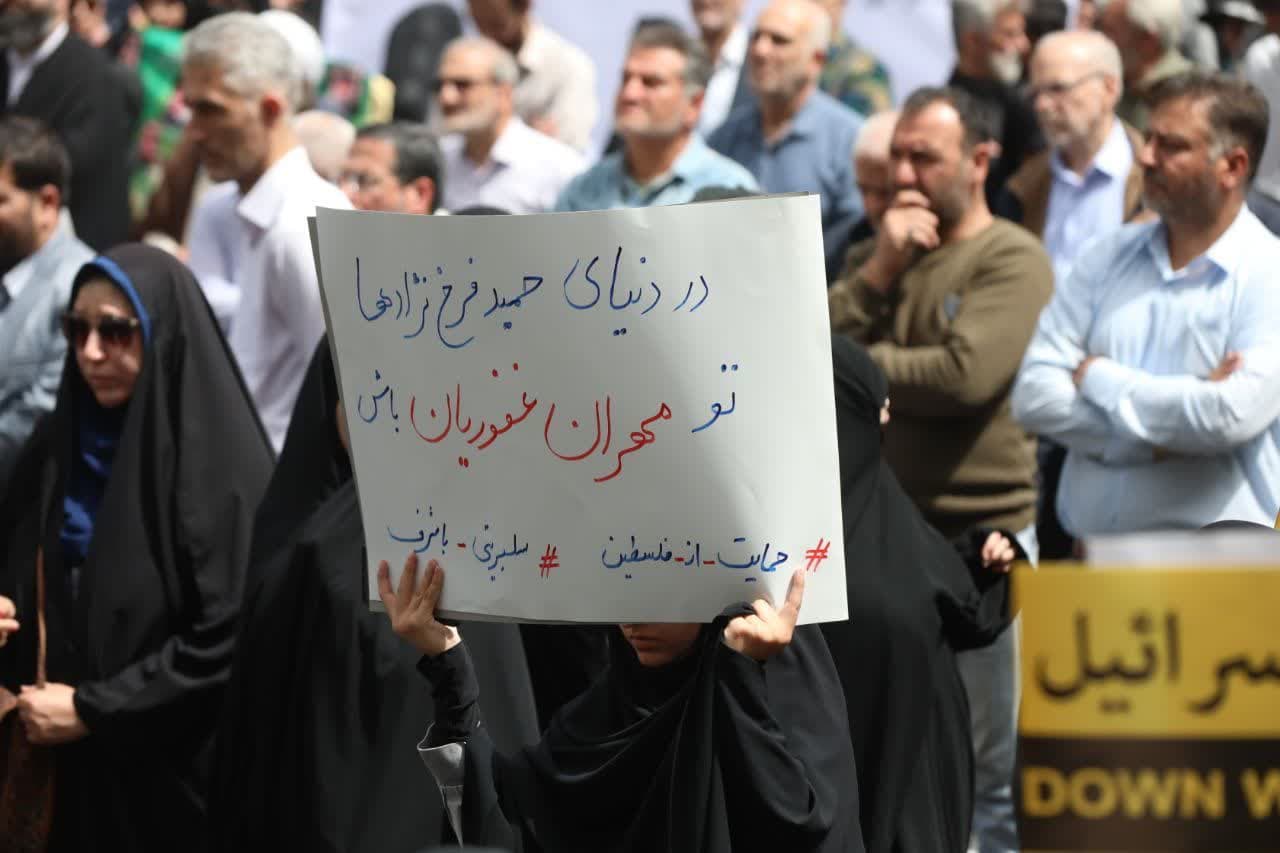 در دنیای حمید فرخ نژادها
تو مهران غفوریان باش
#حمایت_از_فلسطین #سلبریتی_باشرف
سرائیل
DOWN W